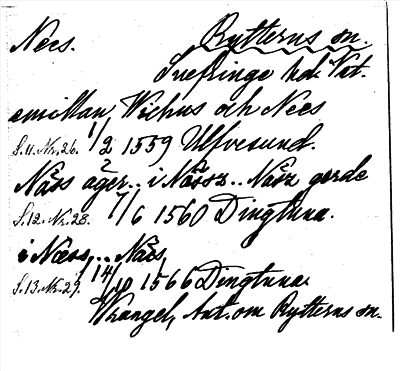 Nees. Rytterns sn.
Snefringe hd. Vst.
emillan Wiehus och Nees
S. 11. Nr. 26. 1/2 1559 Ulfvesund.
Näss äger .. i Nässz .. Näsz gerde
S. 12. Nr. 28. 7/6 1560 Dingtuna.
i Næss, .. Näs,
S. 13. Nr. 29. 14/10 1566 Dingtuna.
Wrangel, Ant. om Rytterns sn.